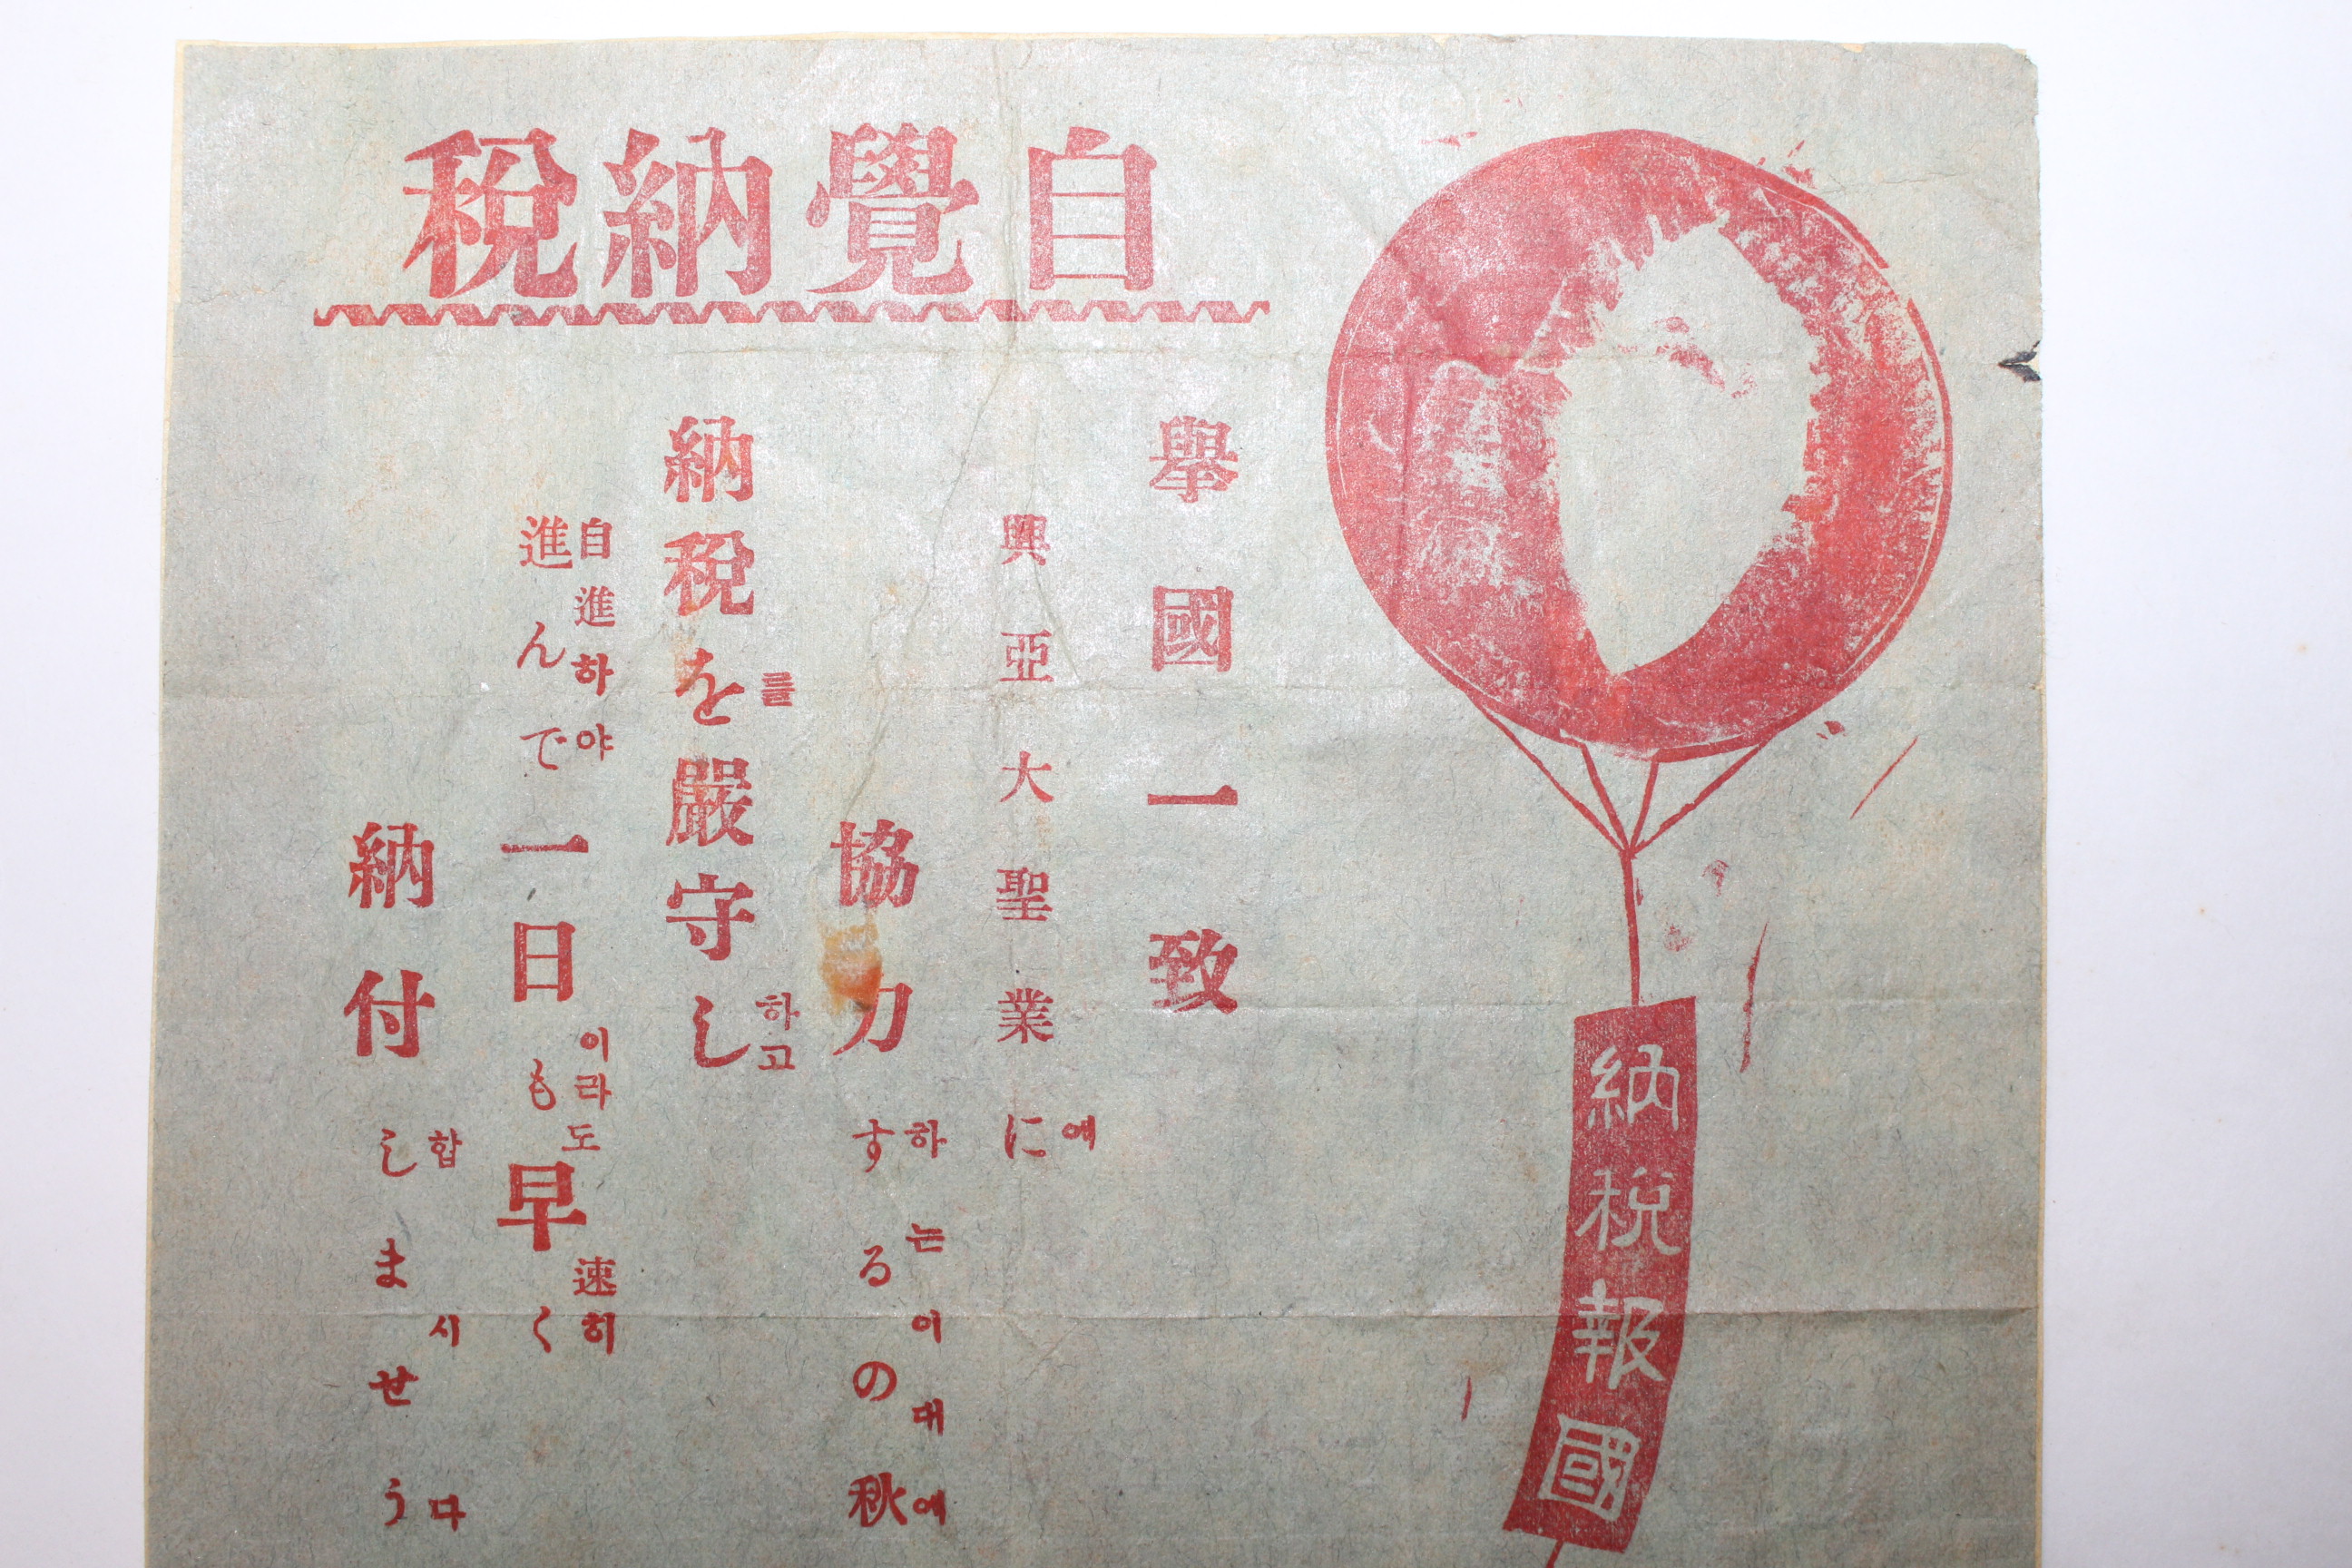 自覺納税
擧國一致
興亞大聖業に
에
協力するの秋
하는이대에
納税を嚴守し
를 하고
進んで一日も早く
自進하야 이라도 速히
納付しませう
합시다
納税報國